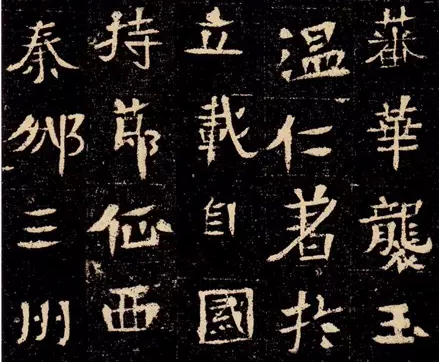 蕃華襲玉
温仁著扵
立載自國
持莭征西
秦三州